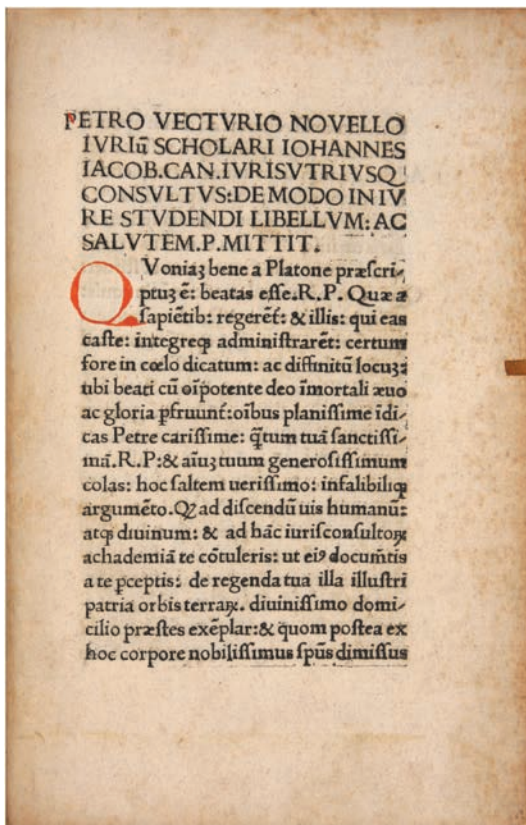 PETRO VECTVRIO NOVELLO
IVRIū SCHOLARI IOHANNES
IACOB.CAN.IVRISVTRIVSQ
CONSVLTVS:DE MODO IN IV
RE STVDENDI LIBELLVM: AC
SALVTEM.P.MITTIT.
QVoniaꝫ bene a Platone præſcri-
ptuꝫ ē: beatas eſſe.R.P. Quæ a
ſapiētib: regerēt᷑: & illis: qui eas
caſte: integreqꝫ adminiſtrarēt: certum
fore in cœlo dicatum: ac diffinitū locuꝫ:
ubi beati cū oīpotente deo īmortali æuo
ac gloria ꝑfruunt᷑:oībus planiſſime īdi-
cas Petre cariſſime: q̄tum tuā ſanctiſſi-
mā.R.P:& aīuꝫ tuum generoſiſſimum
colas: hoc ſaltem ueriſſimo: infalibiliqꝫ
argumēto.Qꝫ ad diſcendū uis humanū:
atqꝫ diuinum: & ad hāc iuriſconſultoꝝ
achademiā te cōtuleris: ut eiꝰ documētis
a te ꝑceptis: de regenda tua illa illuſtri
patria orbis terraꝝ. diuiniſſimo domi-
cilio præſtes exēplar:& quom poſtea ex
hoc corpore nobiliſſimus ſpūs dimiſſus